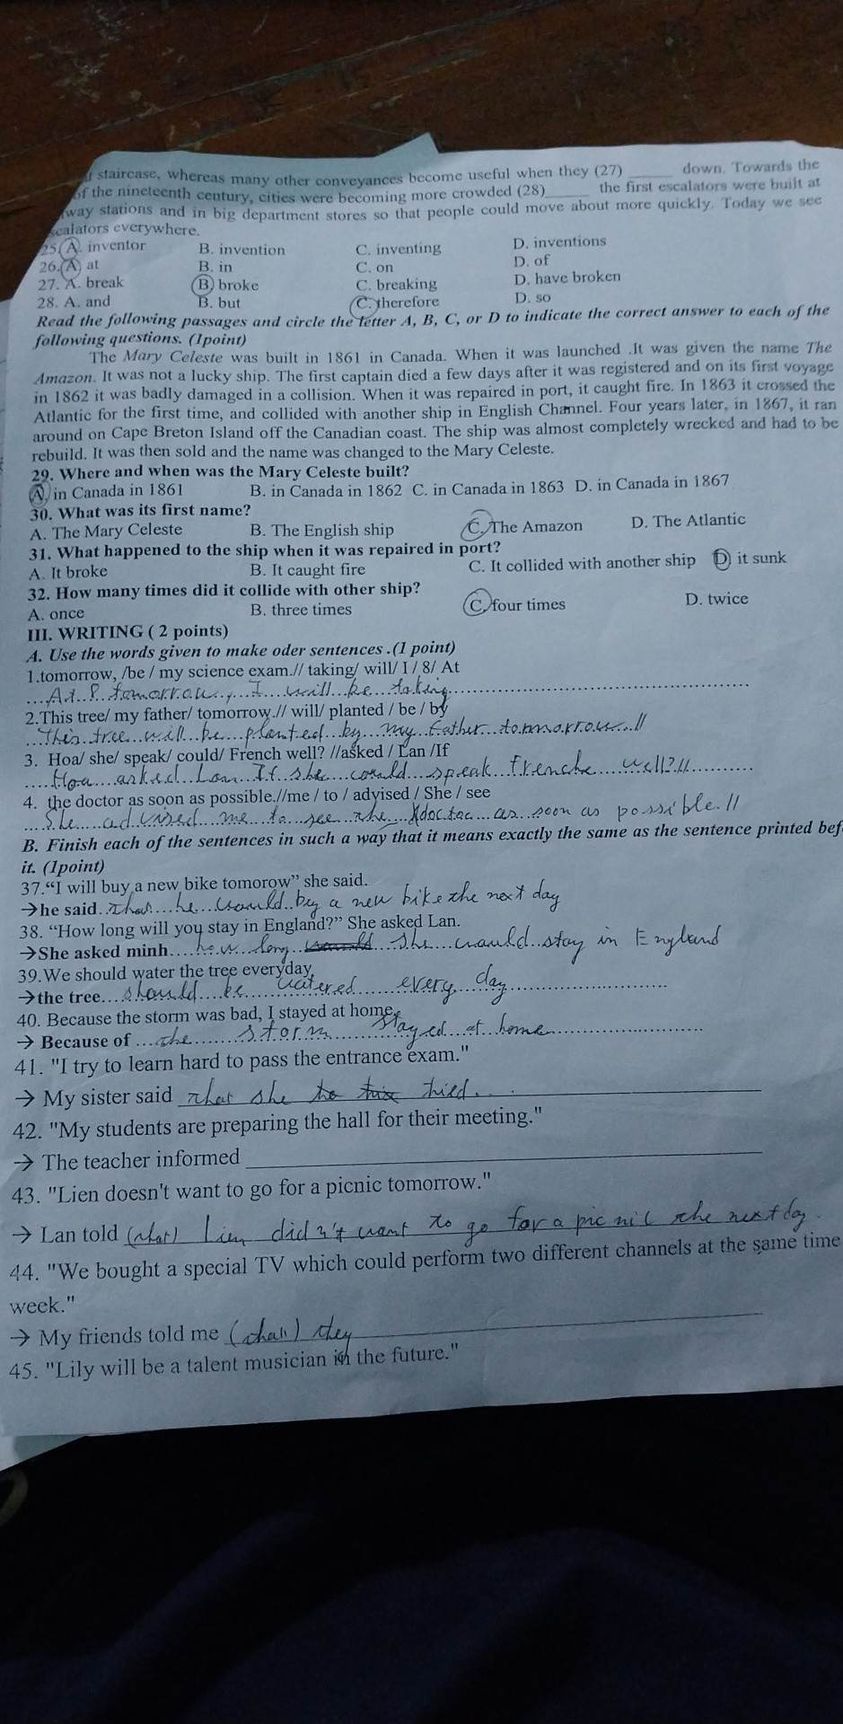 staircase, whereas many other conveyances become useful when they (27) ______ down. Towards the
of the nineteenth century, cities were becoming more crowded (28)______ the first escalators were built at
way stations and in big department stores so that people could move about more quickly. Today we see
escalators everywhere.
25. A. inventor B. invention C. inventing D. inventions
26. A. at B. in C. on D. of
27. A. break B. broke C. breaking D. have broken
28. A. and B. but C. therefore D. so
Read the following passages and circle the letter A, B, C, or D to indicate the correct answer to each of the
following questions. (1point)
The Mary Celeste was built in 1861 in Canada. When it was launched .It was given the name The
Amazon. It was not a lucky ship. The first captain died a few days after it was registered and on its first voyage
in 1862 it was badly damaged in a collision. When it was repaired in port, it caught fire. In 1863 it crossed the
Atlantic for the first time, and collided with another ship in English Channel. Four years later, in 1867, it ran
around on Cape Breton Island off the Canadian coast. The ship was almost completely wrecked and had to be
rebuild. It was then sold and the name was changed to the Mary Celeste.
29. Where and when was the Mary Celeste built?
A. in Canada in 1861 B. in Canada in 1862 C. in Canada in 1863 D. in Canada in 1867
30. What was its first name?
A. The Mary Celeste B. The English ship C. The Amazon D. The Atlantic
31. What happened to the ship when it was repaired in port?
A. It broke B. It caught fire C. It collided with another ship D. it sunk
32. How many times did it collide with other ship?
A. once B. three times C. four times D. twice
III. WRITING ( 2 points)
A. Use the words given to make oder sentences .(1 point)
1.tomorrow, /be / my science exam.// taking/ will/ I / 8/ At
At 8 tomorrow, I will be taking
2.This tree/ my father/ tomorrow.// will/ planted / be / by
This tree will be planted by my Father tomorrow.//
3. Hoa/ she/ speak/ could/ French well? //asked / Lan /If
Hoa asked Lan If she could speak Frenche well?//
4. the doctor as soon as possible.//me / to / advised / She / see
She advised me to see the doctor as soon as possible.//
B. Finish each of the sentences in such a way that it means exactly the same as the sentence printed bef
it. (1point)
37.“I will buy a new bike tomorow” she said.
→he said that he would buy a new bike the next day
38. “How long will you stay in England?” She asked Lan.
→She asked minh how long she would stay in England
39.We should water the tree everyday
→the tree should be watered every day
40. Because the storm was bad, I stayed at home.
→ Because of the storm stayed at home
41. "I try to learn hard to pass the entrance exam."
→ My sister said that she tried.
42. "My students are preparing the hall for their meeting."
→ The teacher informed
43. "Lien doesn't want to go for a picnic tomorrow."
→ Lan told (that) Lien didn't want to go for a picnic the next day.
44. "We bought a special TV which could perform two different channels at the same time
week."
→ My friends told me (that) they
45. "Lily will be a talent musician in the future."